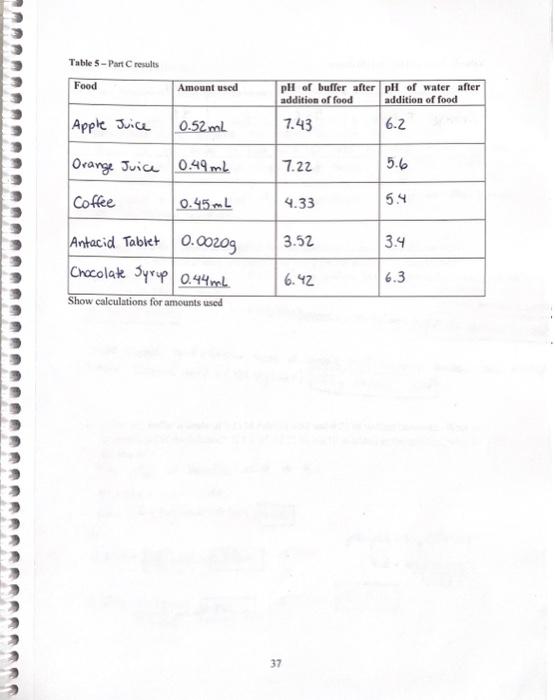 Table 5 – Part C results
Food Amount used pH of buffer after addition of food pH of water after addition of food
Apple Juice 0.52mL 7.43 6.2
Orange Juice 0.49mL 7.22 5.6
Coffee 0.45mL 4.33 5.4
Antacid Tablet 0.0020g 3.52 3.4
Chocolate Syrup 0.44mL 6.42 6.3
Show calculations for amounts used
37